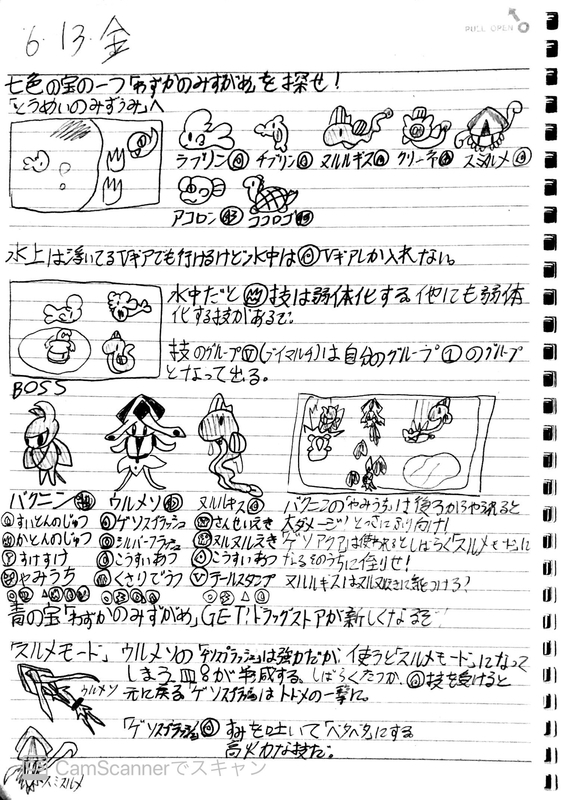 6.13.金
PULL OPEN
七色の宝の一つ「わずかのみずがめ」を探せ!
「とうめいのみずうみ」へ
ラプリン チプリン ヌルルギス クリーネ スミルメ
アコロン ココロゴ
水上は浮いてるVギアでも行けるけど水中は Vギアしか入れない。
水中だと 技は弱体化する 他にも弱体
化する技があるぞ。
技のグループV(ブイマルチ)は自分のグループ①のグループ
となって出る。
BOSS
バクニン ウルメソ ヌルルギス
すいとんのじゅつ ゲソスプラッシュ さんせいえき
かとんのじゅつ シルバーフラッシュ ヌルヌルえき
すけすけ こうすいあつ こうすいあつ
やみうち くさりでうつ テールスタンプ
バクニンの「やみうち」は後ろからやられると
大ダメージ!とっさにふり向け!
「ゲソアクア」は使われるとしばらく「スルメモード」に
なるそのうちに倒せ!
ヌルルギスはヌルヌルに気をつけろ?
青の宝「わずかのみずがめ」GET!ドラッグストアが新しくなるぞ!
「スルメモード」 ウルメソの「ゲソスプラッシュ」は強力だが、使うと「スルメモード」になって
しまう 皿8が半減する。しばらくたつか、 技を受けると
元に戻る「ゲソスプラッシュ」はトドメの一撃に。
ウルメソ
「ゲソスプラッシュ」 すみを吐いてベタベタにする
高火力な技だ。
スミルメ
CS CamScannerでスキャン